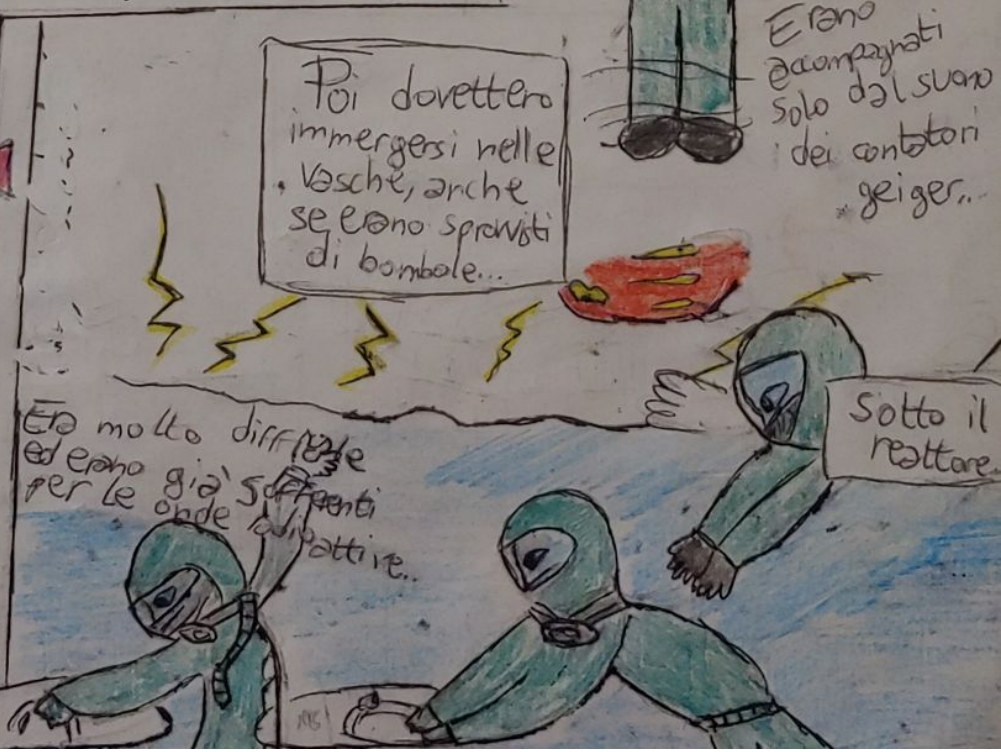 Poi dovettero
immergersi nelle
vasche, anche
se erano sprovvisti
di bombole...
Erano
accompagnati
solo dal suono
dei contatori
geiger...
Sotto il
reattore
Era molto difficile
ed erano già sofferenti
per le onde radioattive...